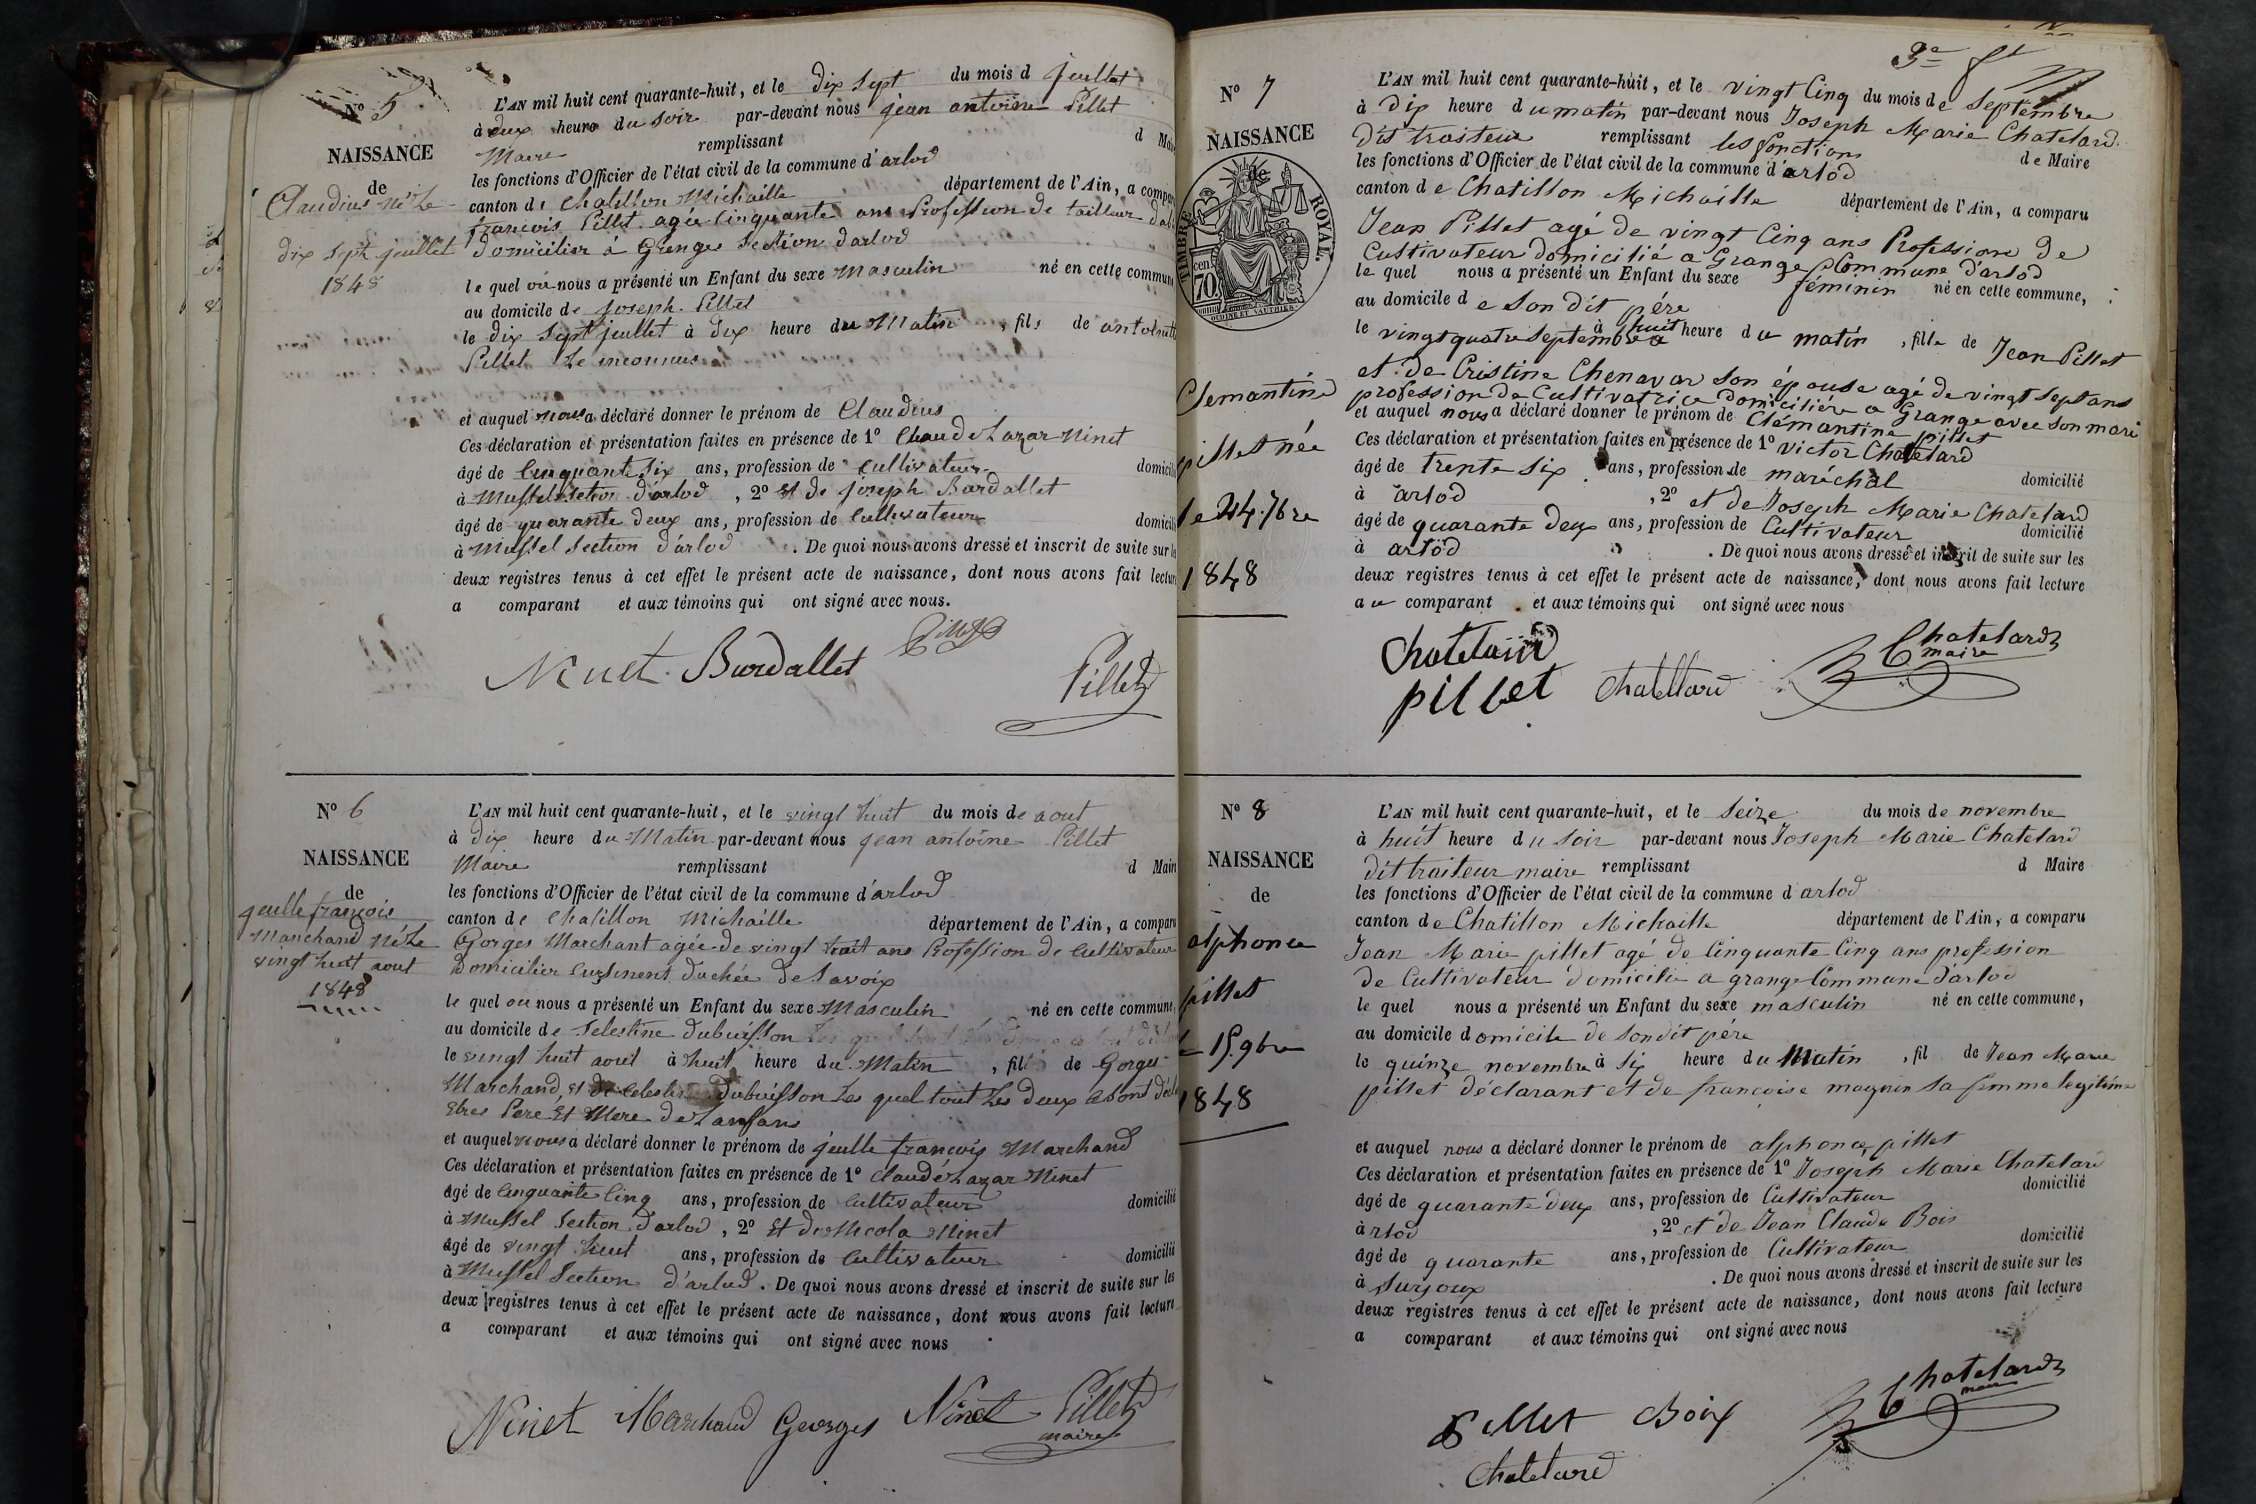 N° 5
NAISSANCE
de
Claudius né Le
dix sept juillet
1848
L'AN mil huit cent quarante-huit, et le dix sept du mois d juillet
à deux heure du soir par-devant nous jean antoine Pillet
Maire remplissant d Maire
les fonctions d'Officier de l'état civil de la commune d'arlod
canton de Chatillon Michaille département de l'Ain, a comparu
francois Pillet agée Cinquante ans Profession de tailleur
domicilier à Granges Section darlod
le quel nous a présenté un Enfant du sexe Masculin né en cette commune
au domicile de joseph Pillet
le dix sept juillet à dix heure du Matin , fils de
Pillet Le inconnue
et auquel nous a déclaré donner le prénom de Claudius
Ces déclaration et présentation faites en présence de 1° Claude Lazar Ninet
âgé de Cinquante Six ans, profession de Cultivateur domicilié
à Mussel Section d'arlod , 2° et de joseph Bardallet
âgé de quarante deux ans, profession de Cultivateur domicilié
à Mussel Section d'arlod . De quoi nous avons dressé et inscrit de suite sur les
deux registres tenus à cet effet le présent acte de naissance, dont nous avons fait lecture
a comparant et aux témoins qui ont signé avec nous.
Ninet Burdallet Pillet
Pillet
N° 6
NAISSANCE
de
jeulle françois
Marchand né Le
vingt huit aout
1848
L'AN mil huit cent quarante-huit, et le vingt huit du mois de aout
à dix heure du Matin par-devant nous jean antoine Pillet
Maire remplissant d Maire
les fonctions d'Officier de l'état civil de la commune d'arlod
canton de Chatillon Michaille département de l'Ain, a comparu
Gorges Marchant agée de vingt huit ans Profession de Cultivateur
domicilier duchée de Savoix
le quel nous a présenté un Enfant du sexe Masculin né en cette commune,
au domicile de Selestine dubuisson
le vingt huit aout à huit heure du Matin , fils de Gorges
Marchand, et de Celestine dubuisson Les quel tout Les deux
Etres Pere Et Mere de Lanfans
et auquel nous a déclaré donner le prénom de jeulle françois Marchand
Ces déclaration et présentation faites en présence de 1° Claude Lazar Ninet
âgé de Cinquante Cinq ans, profession de Cultivateur domicilié
à Mussel Section d'arlod , 2° Et de Nicola Ninet
âgé de vingt huit ans, profession de Cultivateur domicilié
à Mussel Section d'arlod . De quoi nous avons dressé et inscrit de suite sur les
deux registres tenus à cet effet le présent acte de naissance, dont nous avons fait lecture
a comparant et aux témoins qui ont signé avec nous
Ninet Marchand Georges Ninet Pillet
maire
3e
N° 7
NAISSANCE
de
TIMBRE ROYAL
cen. 70.
Clemantine
pillet née
le 24 7bre
1848
L'AN mil huit cent quarante-huit, et le vingt Cinq du mois de Septembre
à dix heure du matin par-devant nous Joseph Marie Chatelard
dit traiteur remplissant les fonctions de Maire
les fonctions d'Officier de l'état civil de la commune d'arlod
canton de Chatillon Michaille département de l'Ain, a comparu
Jean Pillet agé de vingt Cinq ans Profession de
Cultivateur domicilié a Grange Commune d'arlod
le quel nous a présenté un Enfant du sexe féminin né en cette commune,
au domicile de son dit pére
le vingt quatre septembre à huit heure du matin , fille de Jean Pillet
et de Cristine Chenavar son épouse agé de vingt sept ans
profession de Cultivatrice domiciliére a Grange avec son mari
et auquel nous a déclaré donner le prénom de Clémantine pillet
Ces déclaration et présentation faites en présence de 1° victor Chatelard
âgé de trente six ans, profession de maréchal domicilié
à arlod , 2° et de Joseph Marie Chatelard
âgé de quarante deux ans, profession de Cultivateur domicilié
à arlod . De quoi nous avons dressé et inscrit de suite sur les
deux registres tenus à cet effet le présent acte de naissance, dont nous avons fait lecture
au comparant et aux témoins qui ont signé avec nous
Chatelard Chatelard
maire
pillet Chatellard
N° 8
NAISSANCE
de
alphonce
pillet
15 9bre
1848
L'AN mil huit cent quarante-huit, et le seize du mois de novembre
à huit heure du soir par-devant nous Joseph Marie Chatelard
dit traiteur maire remplissant d Maire
les fonctions d'Officier de l'état civil de la commune d'arlod
canton de Chatillon Michaille département de l'Ain, a comparu
Jean Marie pillet agé de Cinquante Cinq ans profession
de Cultivateur domicilié a grange Commune d'arlod
le quel nous a présenté un Enfant du sexe masculin né en cette commune,
au domicile domicile de son dit pére
le quinze novembre à six heure du Matin , fil de Jean Marie
pillet déclarant et de françoise maynin sa femme legitime
et auquel nous a déclaré donner le prénom de alphonce pillet
Ces déclaration et présentation faites en présence de 1° Joseph Marie Chatelard
âgé de quarante deux ans, profession de Cultivateur domicilié
à rlod , 2° et de Jean Claude Bois
âgé de quarante ans, profession de Cultivateur domicilié
à Surjoux . De quoi nous avons dressé et inscrit de suite sur les
deux registres tenus à cet effet le présent acte de naissance, dont nous avons fait lecture
a comparant et aux témoins qui ont signé avec nous
Pillet Boix Chatelard
maire
Chatelard